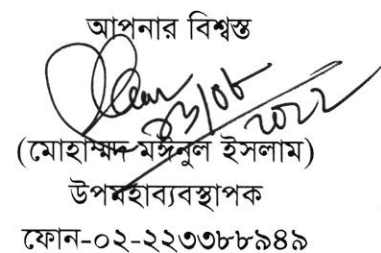 আপনার বিশ্বস্ত
(মোহাম্মদ মঈনুল ইসলাম)
উপমহাব্যবস্থাপক
ফোন-০২-২২৩৩৮৮৯৪৯